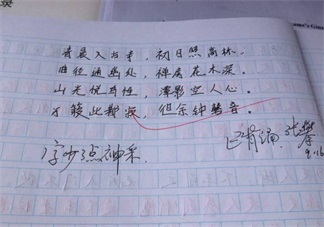 清晨入古寺，初日照高林。
曲径通幽处，禅房花木深。
山光悦鸟性，潭影空人心。
万籁此都寂，但余钟磬音。
字少点神采
已背诵 张
9.16